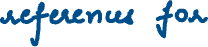 references for